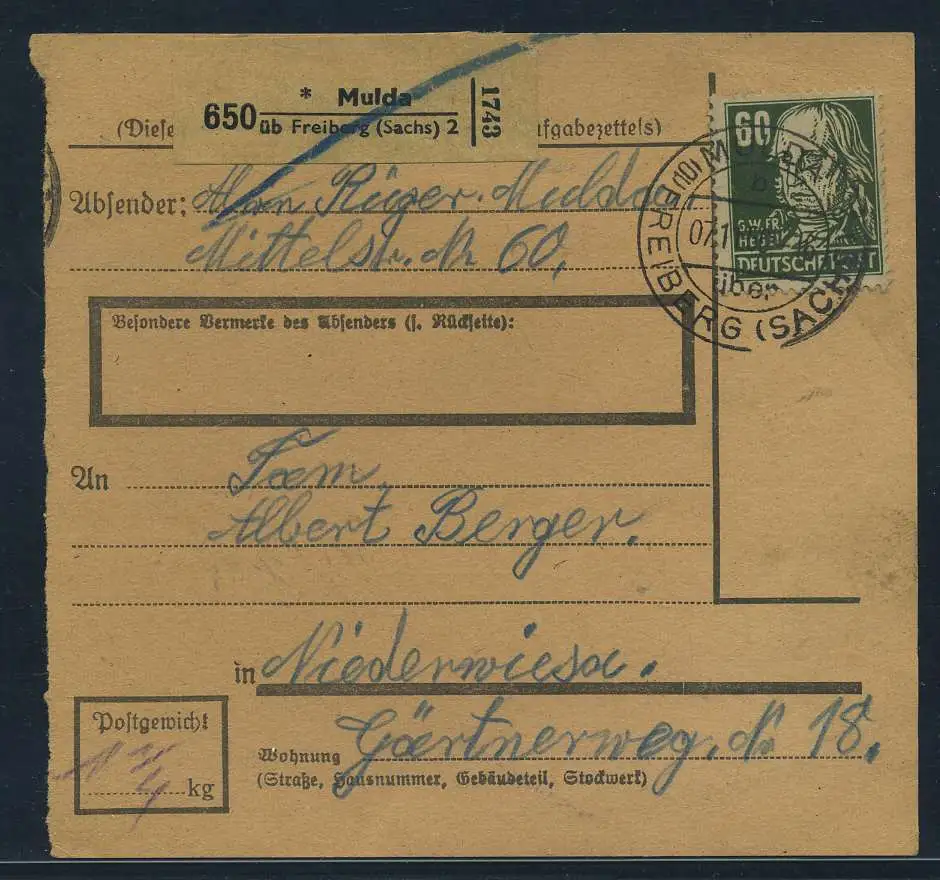 * Mulda
650 üb Freiberg (Sachs) 2
1743
(Diese ufgabezettels)
Absender: Rüger. Mulda
Mittelstr. Nr 60,
60
G.W.FR.
HEGEL
DEUTSCHE POST
(10) MULDA
b
07.1
über
FREIBERG (SACHS)
Besondere Vermerke des Absenders (s. Rückseite):
An Fam.
Albert Berger.
in Niederwiesa.
Postgewicht
kg
Gärtnerweg. No 18.
Wohnung
(Straße, Hausnummer, Gebäudeteil, Stockwerk)